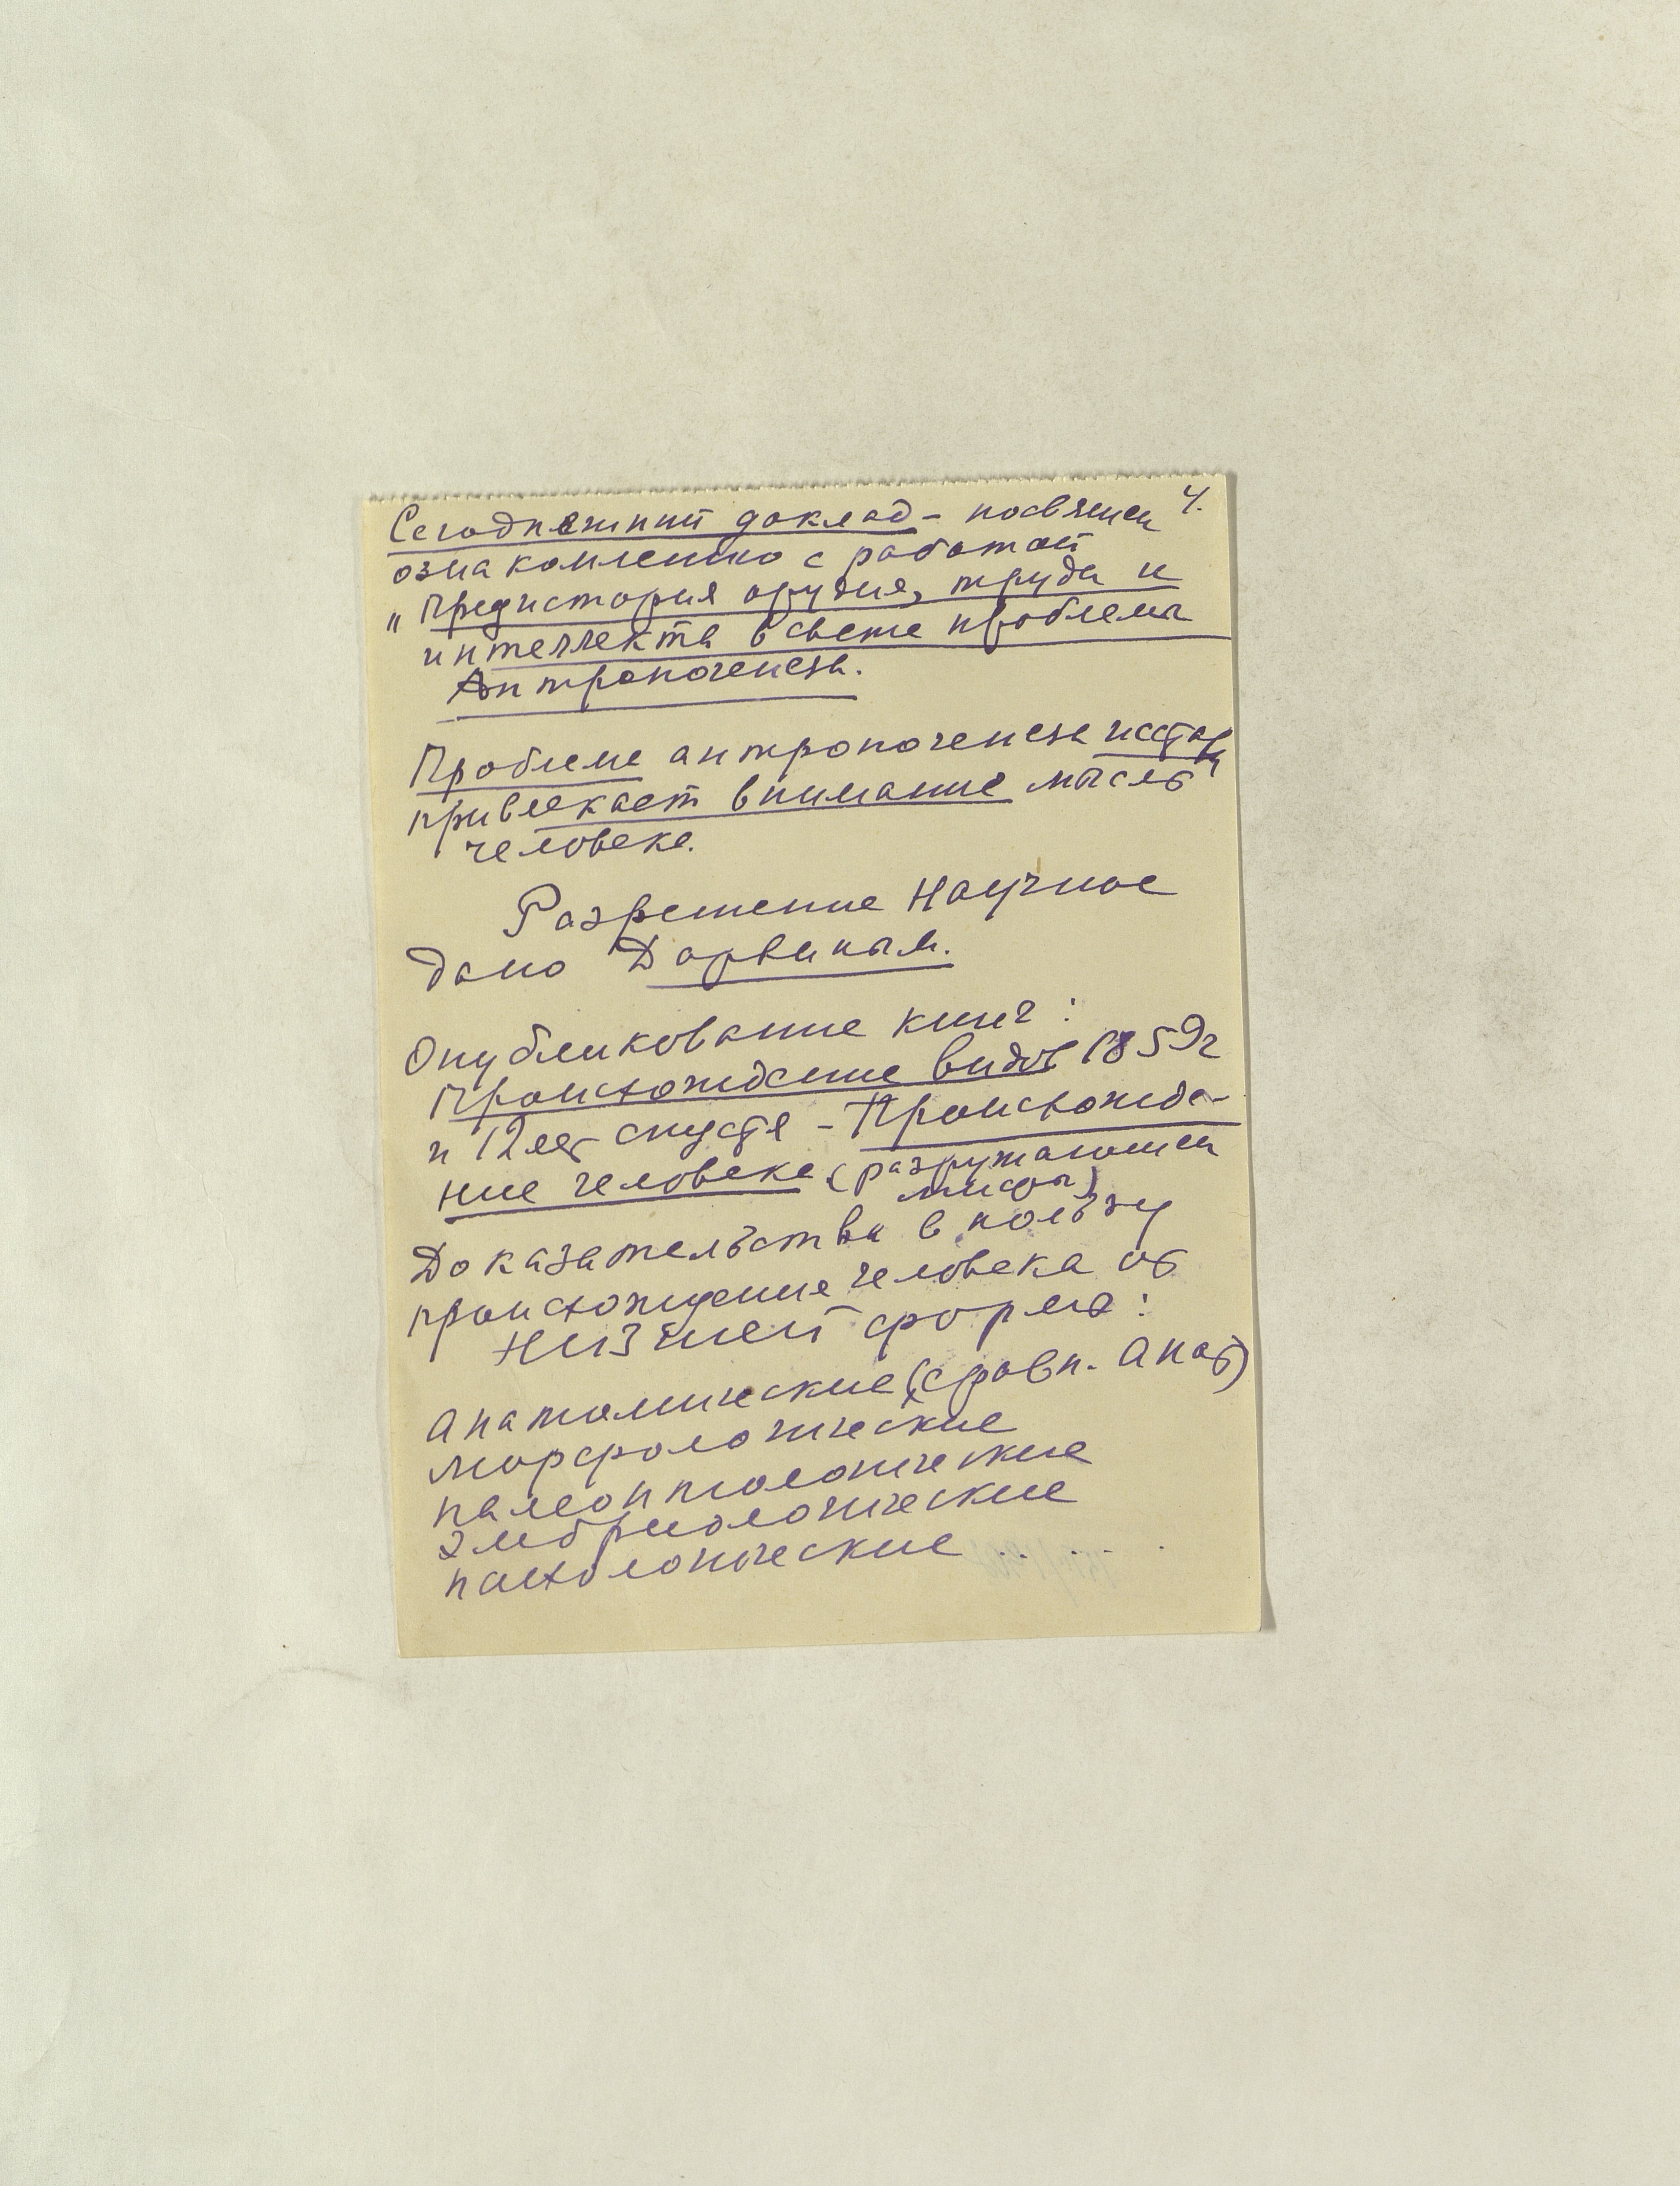 4.
Сегодняшний доклад – посвящен
ознакомлению с работой
„Предистория орудия, труда и
интеллекта в свете проблемы
Антропогенеза.
Проблема антропогенеза исстари
привлекает внимание мысль
человека.
Разрешение Научное
дано Дарвиным.
Опубликование книг:
Происхождение видов 1859г
и 12 лет спустя – Происхожде-
ние человека (разрушающей
мифы)
Доказательства в пользу
происхождение человека от
низшей формы:
анатомические (сравн. Анат)
морфологические
палеонтологические
эмбриологические
патологические . . . . .